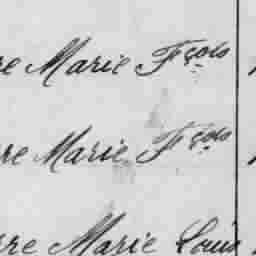 re Marie Fçois
rre Marie Fçois
rre Marie Louis